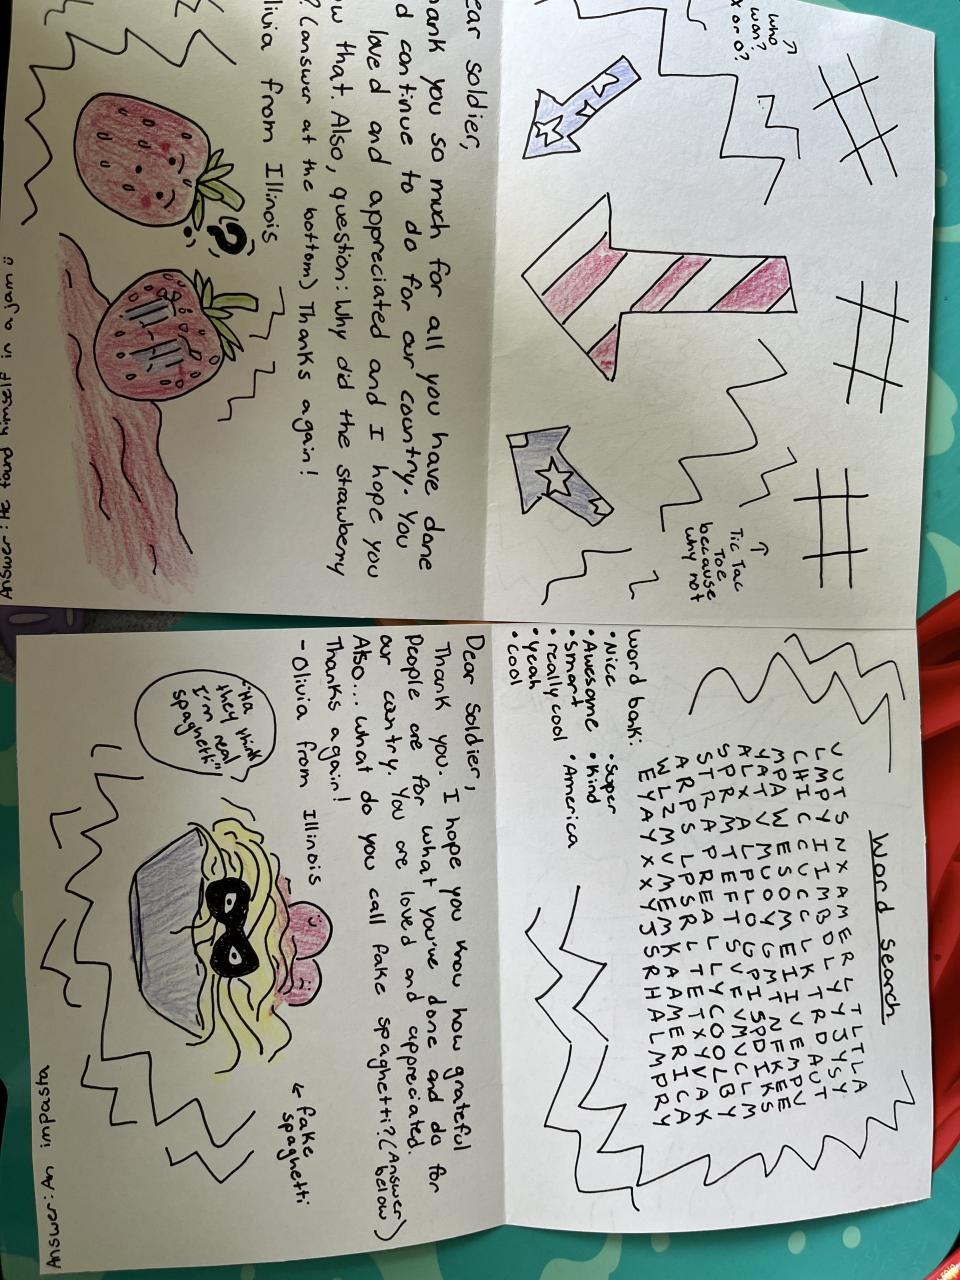 who →
won?
x or o?
↑
Tic Tac
Toe
because
why not
ear soldier,
hank you so much for all you have done
d continue to do for our country. You
loved and appreciated and I hope you
ow that. Also, question: Why did the strawberry
? (answer at the bottom) Thanks again!
livia from Illinois
?
Answer: He found himself in a jam
Word Search
V U T S N X A M E R L T L T L A
L M P Y I I M B D L Y Y J Y S Y
C H I C C U C C L K T R D A U T
M P A W E S O M E I I V E M P U
Y A T V M U O Y G M T N F K E E
A L X A L P L O D P I S P D I K S
S P R M T E F T S V E V M V C L M
S T R A P R E A L L Y C O O L B Y
A R P S L P S R L T E T X Y V A K
W L Z M V M E M K A A M E R I C A
E Y A Y X X Y J S R H A L M P R Y
word bank:
• Nice • Super
• Awesome • Kind
• smart • America
• really cool
• yeah
• cool
Dear Soldier,
Thank you. I hope you know how grateful
People are for what you've done and do for
our contry. You are loved and appreciated.
Also... what do you call fake spaghetti? (Answer below)
Thanks again!
- Olivia from Illinois
"Ha
they think
I'm real
spaghetti"
← fake
spaghetti
Answer: An impasta